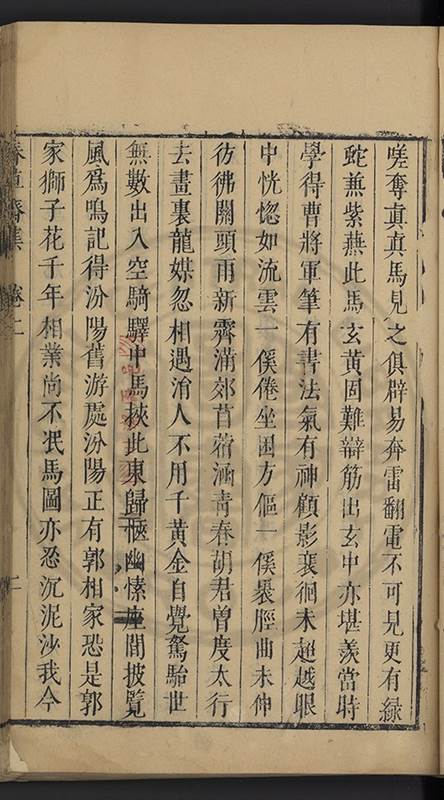 嗟奪真真馬見之俱辟易奔雷翻電不可見更有綠
蛇兼紫燕此馬玄黃固難辯筋出玄中亦堪羨當時
學得曹將軍筆有書法氣有神顧影裵徊未超越眼
中恍惚如流雲一傒倦坐困方傴一傒曩脛曲未伸
彷彿關頭雨新霽滿郊苜蓿涵青春胡君曾度太行
去畫裏龍媒忽相遇消人不用千黃金自覺駑駘世
無數出入空騎驛中馬挾此東歸愜幽愫座間披覽
風爲鳴記得汾陽舊游處汾陽正有郭相家恐是郭
家獅子花千年相業尚不泯馬圖亦恐沉泥沙我今
集 卷二
二